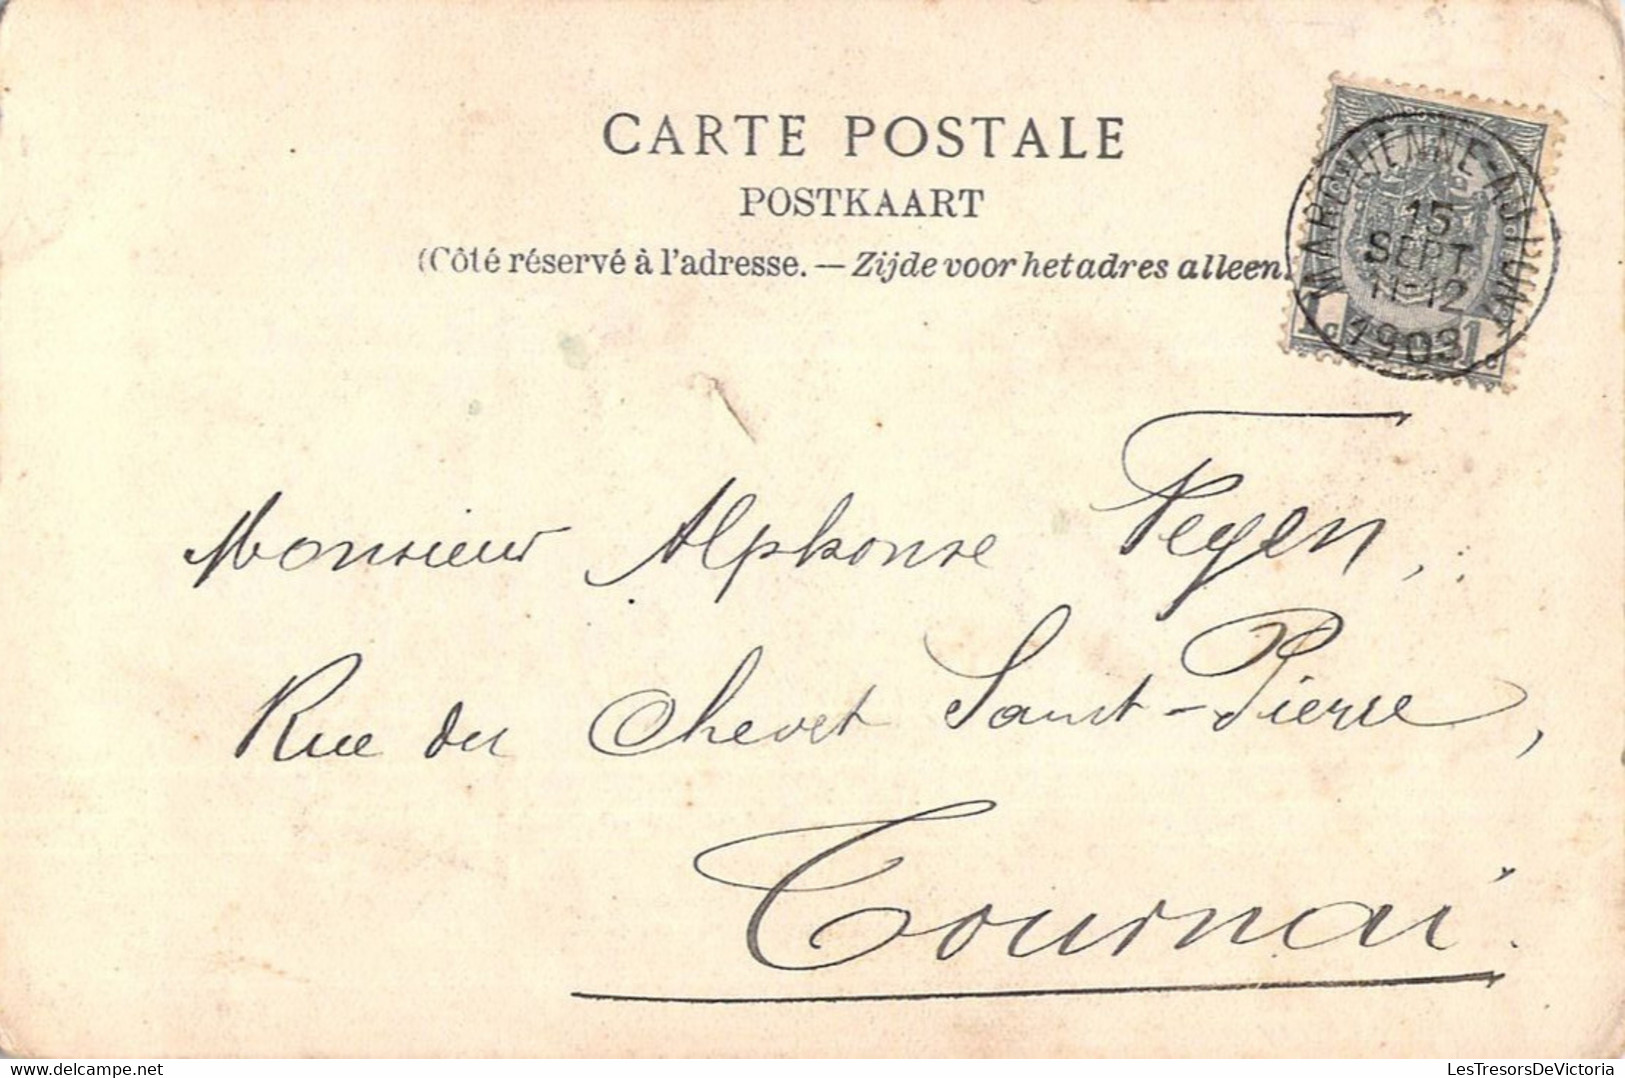 CARTE POSTALE
POSTKAART
(Côté réservé à l'adresse. — Zijde voor het adres alleen.
MARCHIENNE-AU-PONT
15
SEPT
11-12
1903
1c 1c
Monsieur Alphonse Feyen,
Rue du Chevet Saint-Pierre,
Tournai.
LesTresorsDeVictoria